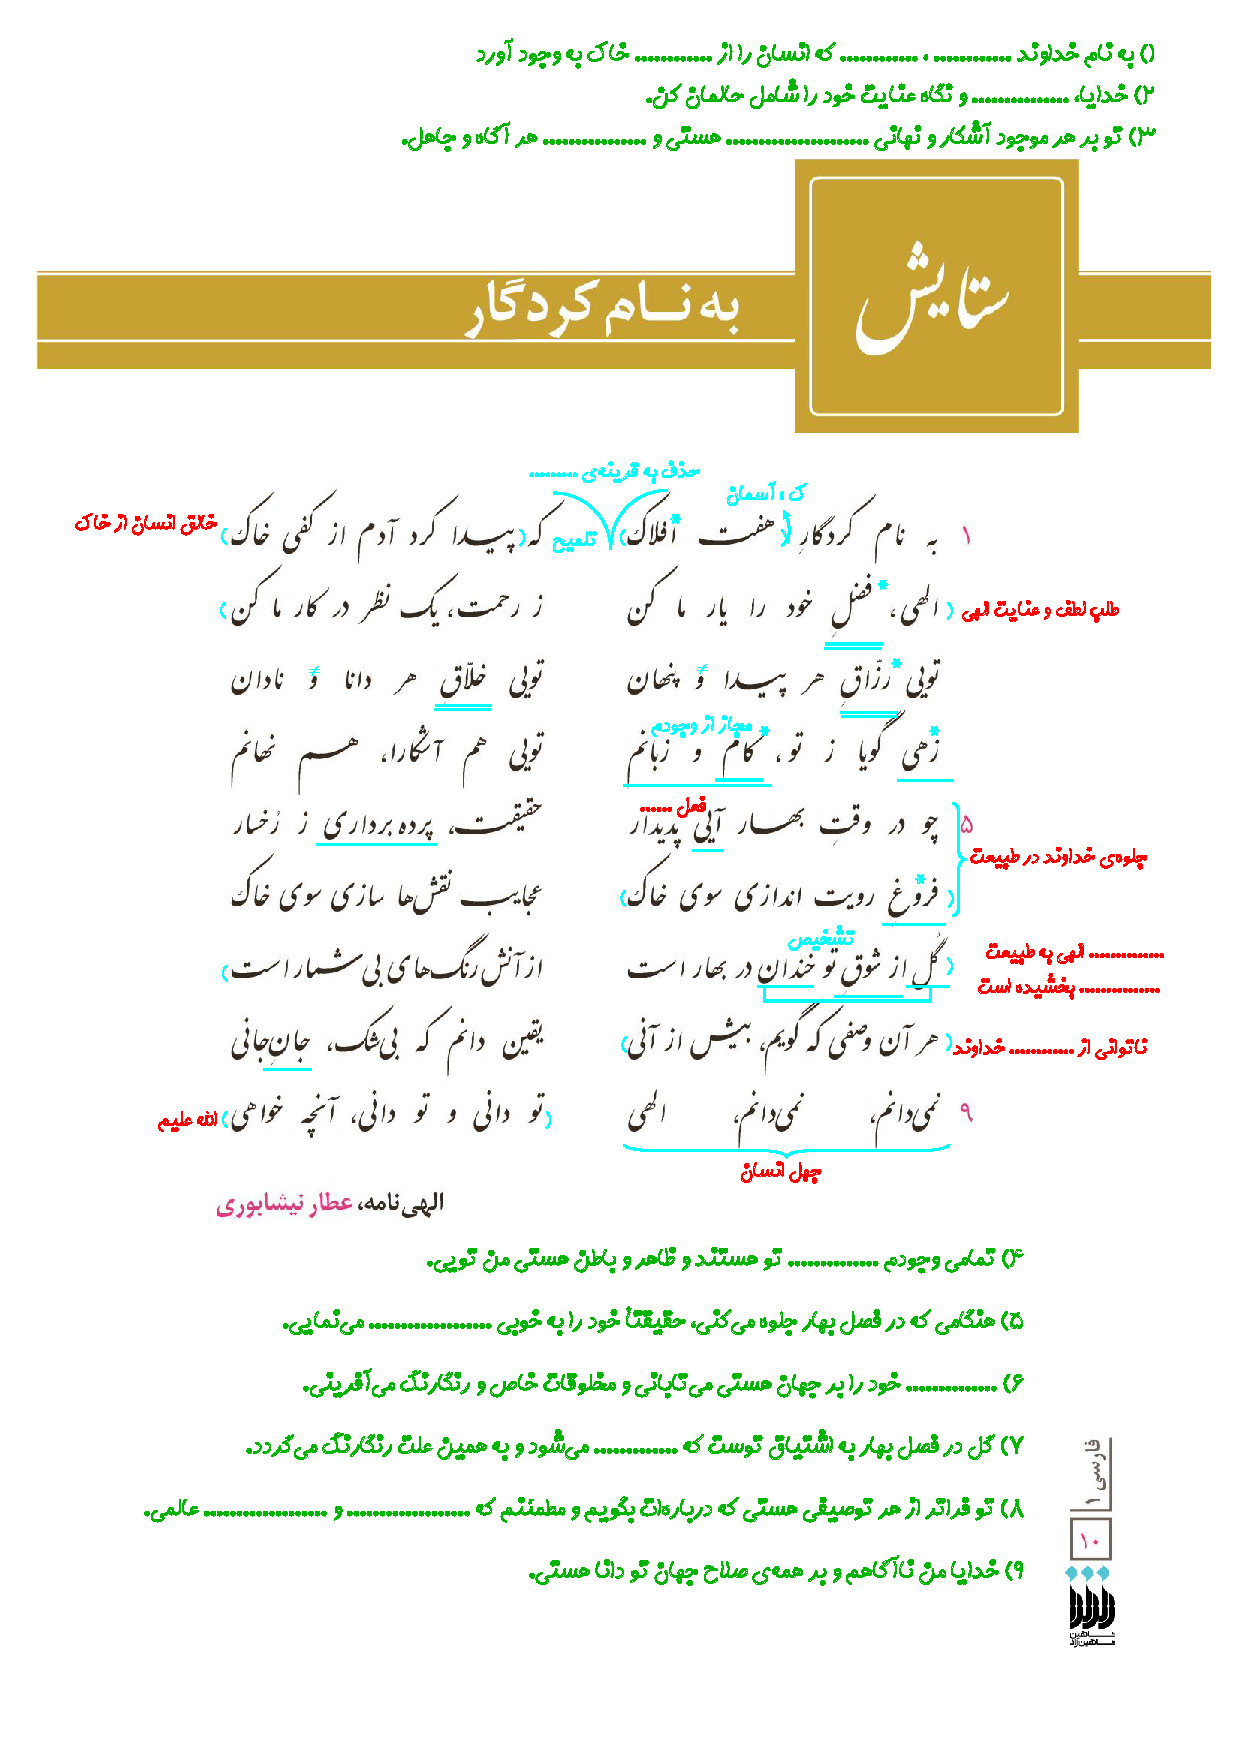 ۱) به نام خداوند ............ ، ............ که انسان را از ............ خاک به وجود آورد
۲) خدایا، ............... و نگاه عنایت خود را شامل حالمان کن.
۳) تو بر هر موجود آشکار و نهانی ...................... هستی و ................ هر آگاه و جاهل.
ستایش
به نام کردگار
حذف به قرینه‌ی .........
ک ه آسمان
۱ به نام کردگارِ (هفت افلاک*) تلمیح که (پیدا کرد آدم از کفی خاک) خالق انسان از خاک
طلب لطف و عنایت الهی (الهی، فضلِ* خود را یار ما کن ز رحمت، یک نظر در کار ما کن)
تویی رزّاقِ* هر پیدا و ≠ پنهان تویی خلّاقِ هر دانا و ≠ نادان
مجاز از وجودم
زهی* گویا ز تو، کام* و زبانم تویی هم آشکارا، هم نهانم
فعل ......
۵ چو در وقتِ بهار آیی پدیدار حقیقت، پرده برداری ز رُخسار
جلوه‌ی خداوند در طبیعت
(فروغِ* رویت اندازی سوی خاک) عجایب نقش‌ها سازی سوی خاک
تشخیص
.............. الهی به طبیعت
(گُل از شوقِ تو خندان در بهار است از آنش رنگ‌های بی‌شمار است)
............... بخشیده است
ناتوانی از ............ خداوند (هر آن وصفی که گویم، بیش از آنی) یقین دانم که بی‌شک، جانِ جانی
۹ نمی‌دانم، نمی‌دانم، الهی (تو دانی و تو دانی، آنچه خواهی) الله علیم
جهل انسان
الهی‌نامه، عطار نیشابوری
۴) تمامی وجودم .............. تو هستند و ظاهر و باطن هستی من تویی.
۵) هنگامی که در فصل بهار جلوه می‌کنی، حقیقتاً خود را به خوبی ................... می‌نمایی.
۶) .............. خود را بر جهان هستی می‌تابانی و مخلوقات خاص و رنگارنگ می‌آفرینی.
۷) گل در فصل بهار به اشتیاق توست که ............. می‌شود و به همین علت رنگارنگ می‌گردد.
۸) تو فراتر از هر توصیفی هستی که درباره‌ات بگویم و مطمئنم که ................... و ................... عالمی.
۹) خدایا من ناآگاهم و بر همه‌ی صلاح جهان تو دانا هستی.
فارسی ۱
۱۰